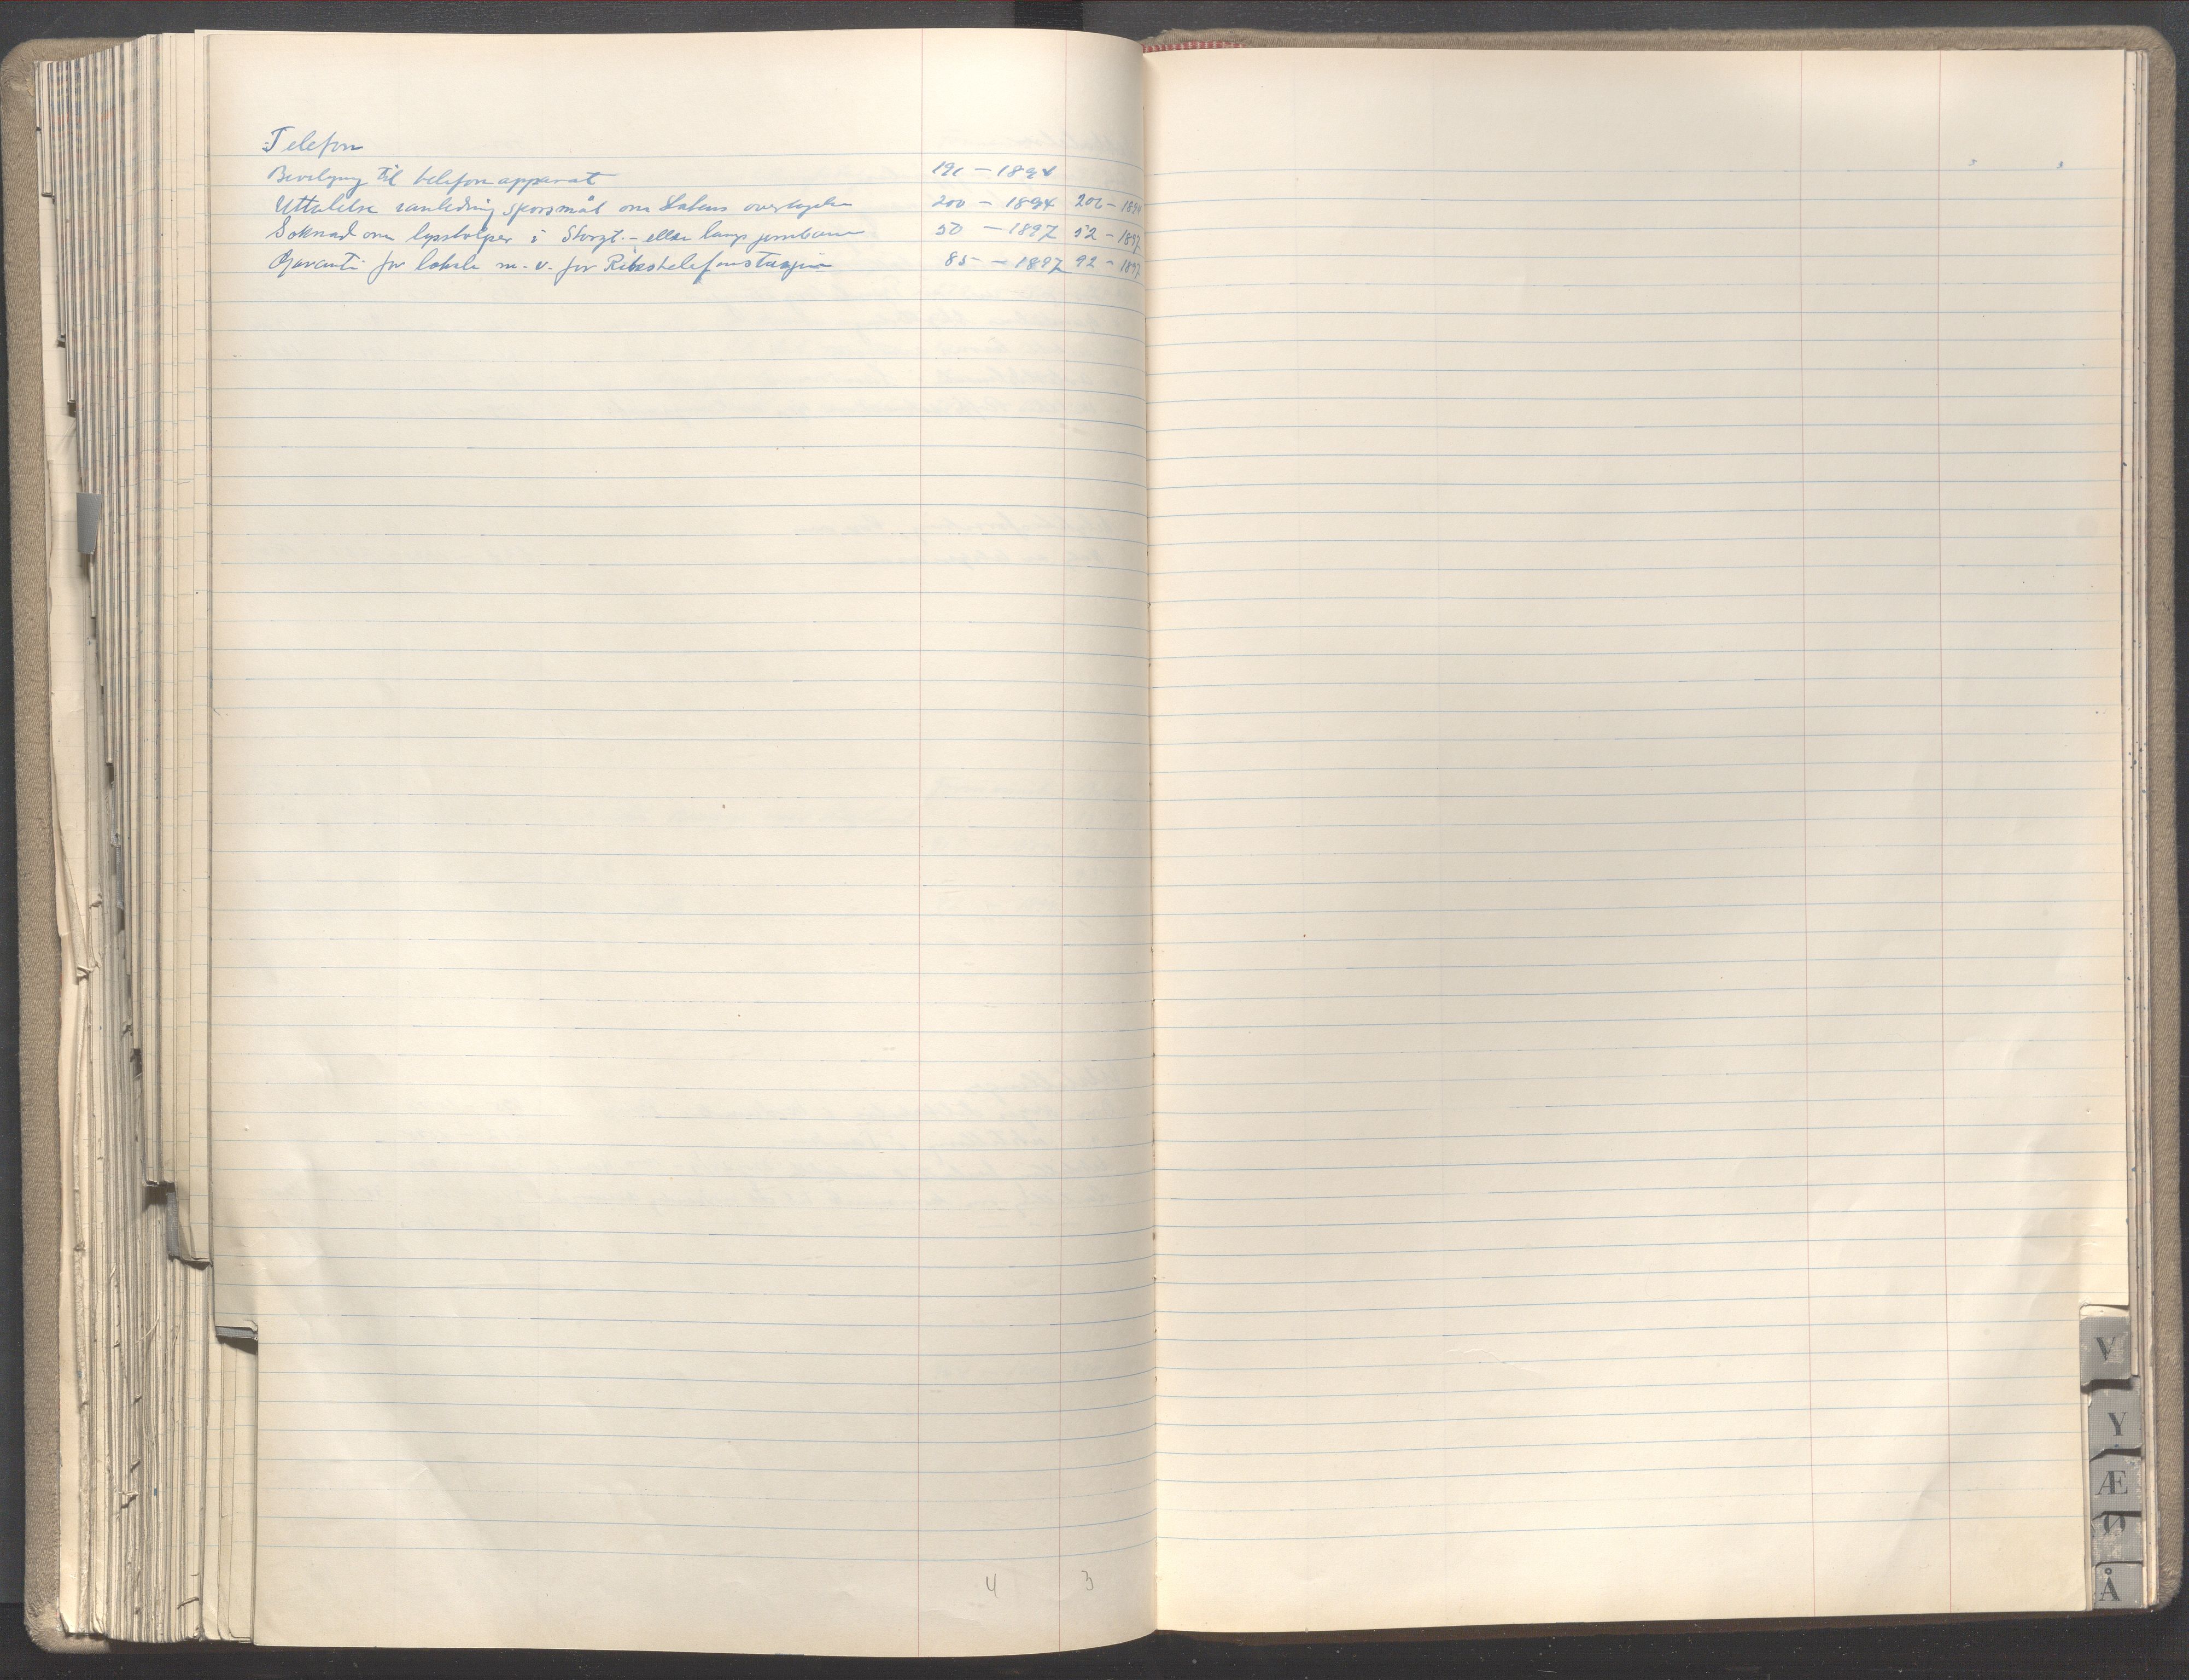 Telefon
Bevilgning til telefonapparat 191 - 1894
Uttalelse i anledning spørsmål om Statens overtagelse 200 - 1894 206 - 1894
Søknad om lysstolper i Storgt. - eller langs jernbanen 50 - 1897 52 - 1897
Garanti for lokale m. v. for Rikstelefonstasjon 85 - 1897 92 - 1897
4 3
V
Y
Æ
Ø
Å